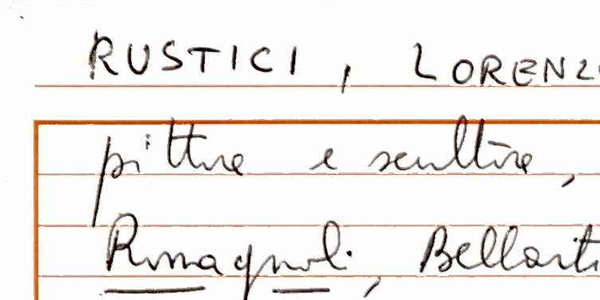 RUSTICI, LORENZ
pittore e scultore,
Romagnoli, Bellarti